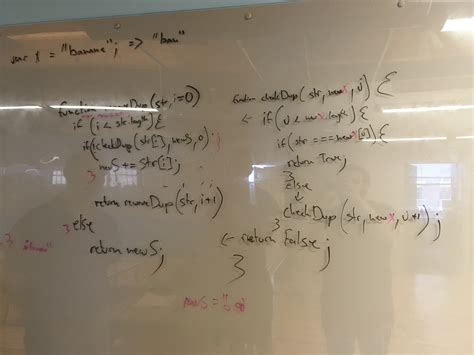 var x = "banana"; => "ban"
function removeDup(str, i=0)
if (i < str.length) {
if(!checkDup(str[i], newS, 0)
newS += str[i];
return removeDup(str, i+1)
} else
return newS;
function checkDup(str, news, j) {
if (j < news.length) {
if(str === news[j]) {
return True;
} else
checkDup(str, news, j+1);
}
return False;
}
newS = "b